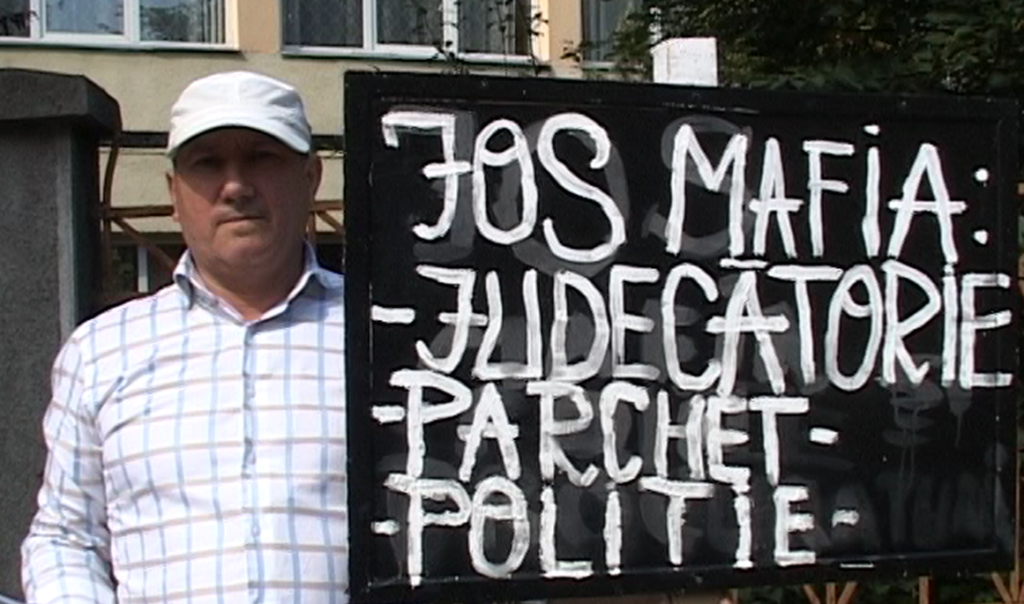 JOS MAFiA:
-JUDECĂTORIE
-PARCHET-
-POLITIE-